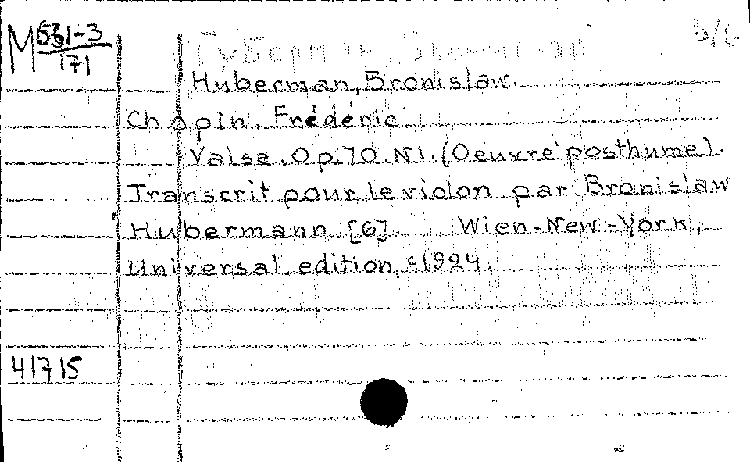 М 561-3
171
б/с
Huberman, Bronislaw.
Chopin, Frédéric
Valse. Op. 70. N1. (Oeuvre posthume).
Transcrit pour le violon par Bronislaw
Hubermann [6] Wien-New-York,
Universal edition, c1924.
41715